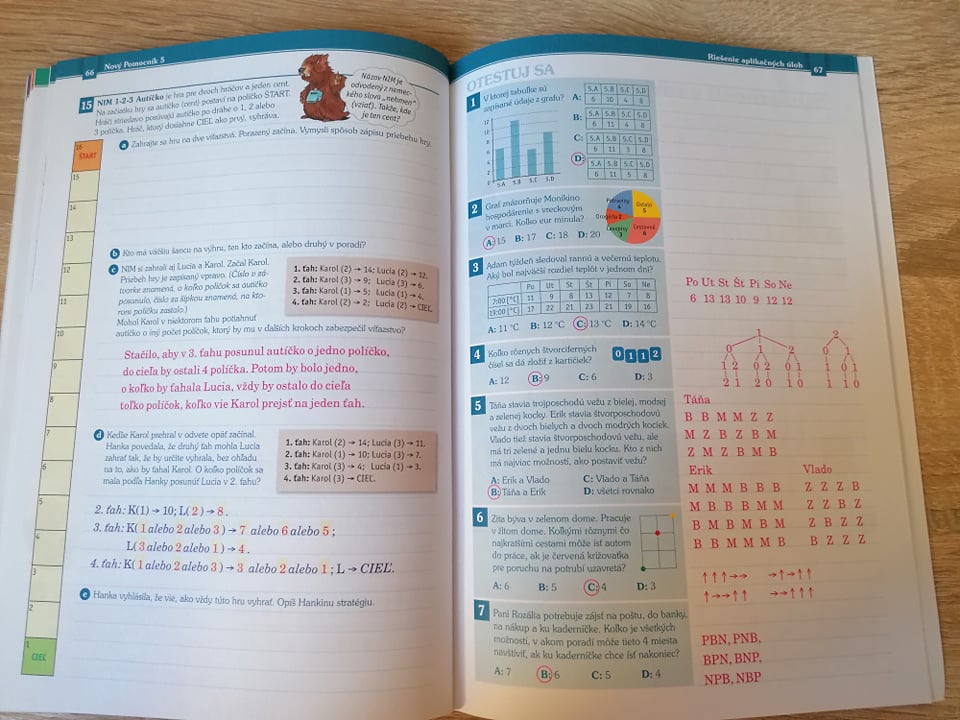 66 Nový Pomocník 5
15 NIM 1-2-3 Autíčko je hra pre dvoch hráčov a jeden cent.
Na začiatku hry sa autíčko (cent) postaví na políčko ŠTART.
Hráči striedavo posúvajú autíčko po dráhe o 1, 2 alebo
3 políčka. Hráč, ktorý dosiahne CIEĽ ako prvý, vyhráva.
Názov NIM je
odvodený z nemec-
kého slova „nehmen“
(vziať). Takže, kde
je ten cent?
a Zahrajte sa hru na dve víťazstvá. Porazený začína. Vymysli spôsob zápisu priebehu hry.
16
ŠTART
15
14
13
12
11
10
9
8
7
6
5
4
3
2
1
CIEĽ
b Kto má väčšiu šancu na výhru, ten kto začína, alebo druhý v poradí?
c NIM si zahrali aj Lucia a Karol. Začal Karol.
Priebeh hry je zapísaný vpravo. (Číslo v zá-
tvorke znamená, o koľko políčok sa autíčko
posunulo, číslo za šípkou znamená, na kto-
rom políčku zastalo.)
Mohol Karol v niektorom ťahu potiahnuť
autíčko o iný počet políčok, ktorý by mu v ďalších krokoch zabezpečil víťazstvo?
1. ťah: Karol (2) → 14; Lucia (2) → 12.
2. ťah: Karol (3) → 9; Lucia (3) → 6.
3. ťah: Karol (1) → 5; Lucia (1) → 4.
4. ťah: Karol (2) → 2; Lucia (2) → CIEĽ.
Stačilo, aby v 3. ťahu posunul autíčko o jedno políčko,
do cieľa by ostali 4 políčka. Potom by bolo jedno,
o koľko by ťahala Lucia, vždy by ostalo do cieľa
toľko políčok, koľko vie Karol prejsť na jeden ťah.
d Keďže Karol prehral v odvete opäť začínal.
Hanka povedala, že druhý ťah mohla Lucia
zahrať tak, že by určite vyhrala, bez ohľadu
na to, ako by ťahal Karol. O koľko políčok sa
mala podľa Hanky posunúť Lucia v 2. ťahu?
1. ťah: Karol (2) → 14; Lucia (3) → 11.
2. ťah: Karol (1) → 10; Lucia (3) → 7.
3. ťah: Karol (3) → 4; Lucia (1) → 3.
4. ťah: Karol (3) → CIEĽ.
2. ťah: K(1) → 10; L(2) → 8.
3. ťah: K(1 alebo 2 alebo 3) → 7 alebo 6 alebo 5;
L(3 alebo 2 alebo 1) → 4.
4. ťah: K(1 alebo 2 alebo 3) → 3 alebo 2 alebo 1; L → CIEĽ.
e Hanka vyhlásila, že vie, ako vždy túto hru vyhrať. Opíš Hankinu stratégiu.
Riešenie aplikačných úloh 67
OTESTUJ SA
1 V ktorej tabuľke sú
zapísané údaje z grafu?
12
10
8
6
4
2
0
5.A 5.B 5.C 5.D
A: 5.A 5.B 5.C 5.D
6 10 4 8
B: 5.A 5.B 5.C 5.D
6 11 4 8
C: 5.A 5.B 5.C 5.D
6 11 3 8
D: 5.A 5.B 5.C 5.D
6 11 5 8
2 Graf znázorňuje Monikino
hospodárenie s vreckovým
v marci. Koľko eur minula?
Potraviny 4
Ostalo 5
Drogéria 2
Časopisy 3
Cestovné 6
A: 15 B: 17 C: 18 D: 20
3 Adam týždeň sledoval rannú a večernú teplotu.
Aký bol najväčší rozdiel teplôt v jednom dni?
Po Ut St Št Pi So Ne
7:00 [°C] 11 9 8 13 12 7 8
19:00 [°C] 17 22 21 23 21 19 16
A: 11 °C B: 12 °C C: 13 °C D: 14 °C
Po Ut St Št Pi So Ne
6 13 13 10 9 12 12
4 Koľko rôznych štvorciferných
čísel sa dá zložiť z kartičiek?
0 1 1 2
A: 12 B: 9 C: 6 D: 3
1 2
0 1 2 0 1
1 2 0 2 0 1 1 1 0
2 1 2 0 1 0 1 1 0
5 Táňa stavia trojposchodovú vežu z bielej, modrej
a zelenej kocky. Erik stavia štvorposchodovú
vežu z dvoch bielych a dvoch modrých kociek.
Vlado tiež stavia štvorposchodovú vežu, ale
má tri zelené a jednu bielu kocku. Kto z nich
má najviac možností, ako postaviť vežu?
A: Erik a Vlado C: Vlado a Táňa
B: Táňa a Erik D: všetci rovnako
Táňa
B B M M Z Z
M Z B Z B M
Z M Z B M B
Erik Vlado
M M M B B B Z Z Z B
M B B M M B Z Z B Z
B M B M B M Z B Z Z
B B M M M B B Z Z Z
6 Zita býva v zelenom dome. Pracuje
v žltom dome. Koľkými rôznymi čo
najkratšími cestami môže ísť autom
do práce, ak je červená križovatka
pre poruchu na potrubí uzavretá?
A: 6 B: 5 C: 4 D: 3
↑↑↑→→ →↑→↑↑
↑→→↑↑ →→↑↑↑
7 Pani Rozália potrebuje zájsť na poštu, do banky,
na nákup a ku kaderníčke. Koľko je všetkých
možností, v akom poradí môže tieto 4 miesta
navštíviť, ak ku kaderníčke chce ísť nakoniec?
A: 7 B: 6 C: 5 D: 4
PBN, PNB,
BPN, BNP,
NPB, NBP